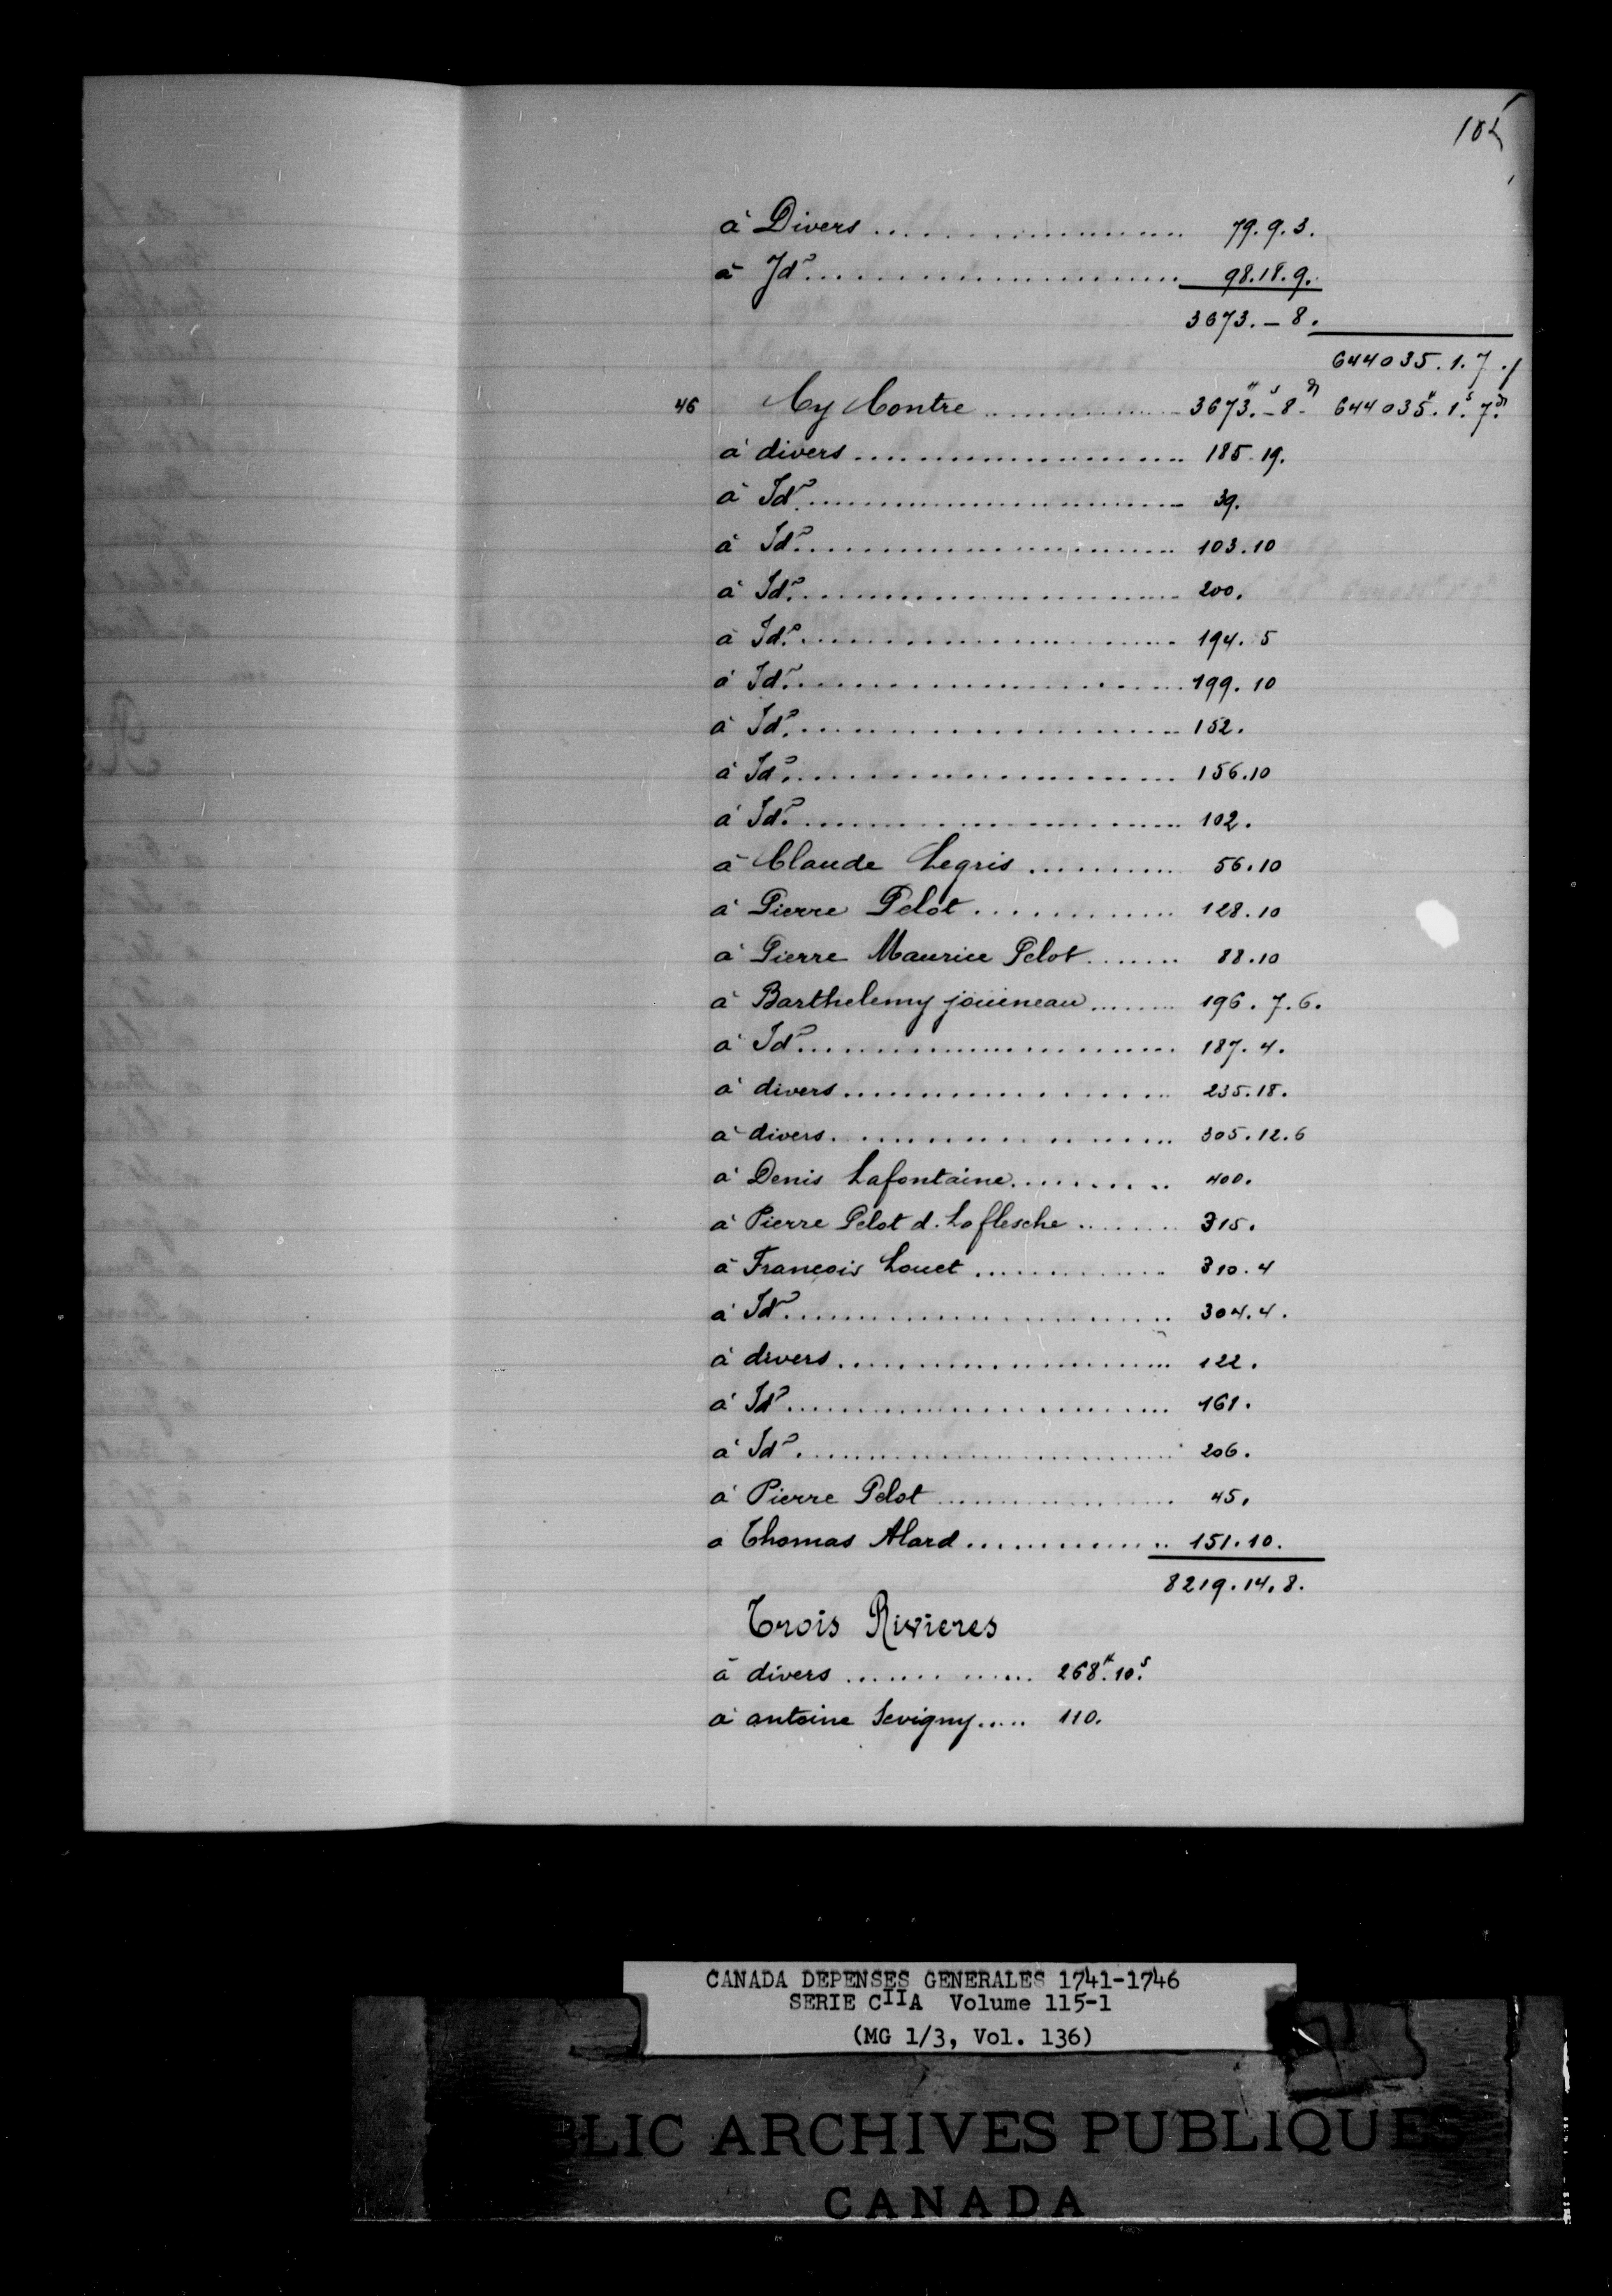 105
à Divers .................... 79. 9. 3.
à Jdo .................... 98. 18. 9.
3673. — 8.
644035. 1. 7.
46 Cy Contre .................... 3673.# —s 8.d 644035.# 1.s 7.d
à divers .................... 185. 19.
à Ido .................... 39.
à Ido .................... 103. 10
à Ido .................... 200.
à Ido .................... 194. 5
à Ido .................... 199. 10
à Ido .................... 152.
à Ido .................... 156. 10
à Ido .................... 102.
à Claude Legris .......... 56. 10
à Pierre Pelot ............ 128. 10
à Pierre Maurice Pelot ....... 88. 10
à Barthelemy jouineau ........ 196. 7. 6.
à Ido .................... 187. 4.
à divers .................... 235. 18.
à divers .................... 305. 12. 6
à Denis Lafontaine .......... 400.
à Pierre Pelot d. Laflesche ........ 315.
à François Louet ............. 310. 4
à Ido .................... 304. 4.
à divers .................... 122.
à Ido .................... 161.
à Ido .................... 206.
à Pierre Pelot .................... 45.
a Thomas Alard .............. 151. 10.
8219. 14. 8.
Trois Rivieres
à divers .............. 268.# 10.s
à antoine Sevigny ..... 110.
CANADA DEPENSES GENERALES 1741-1746
SERIE CIIA Volume 115-1
(MG 1/3, Vol. 136)
BLIC ARCHIVES PUBLIQUES
CANADA